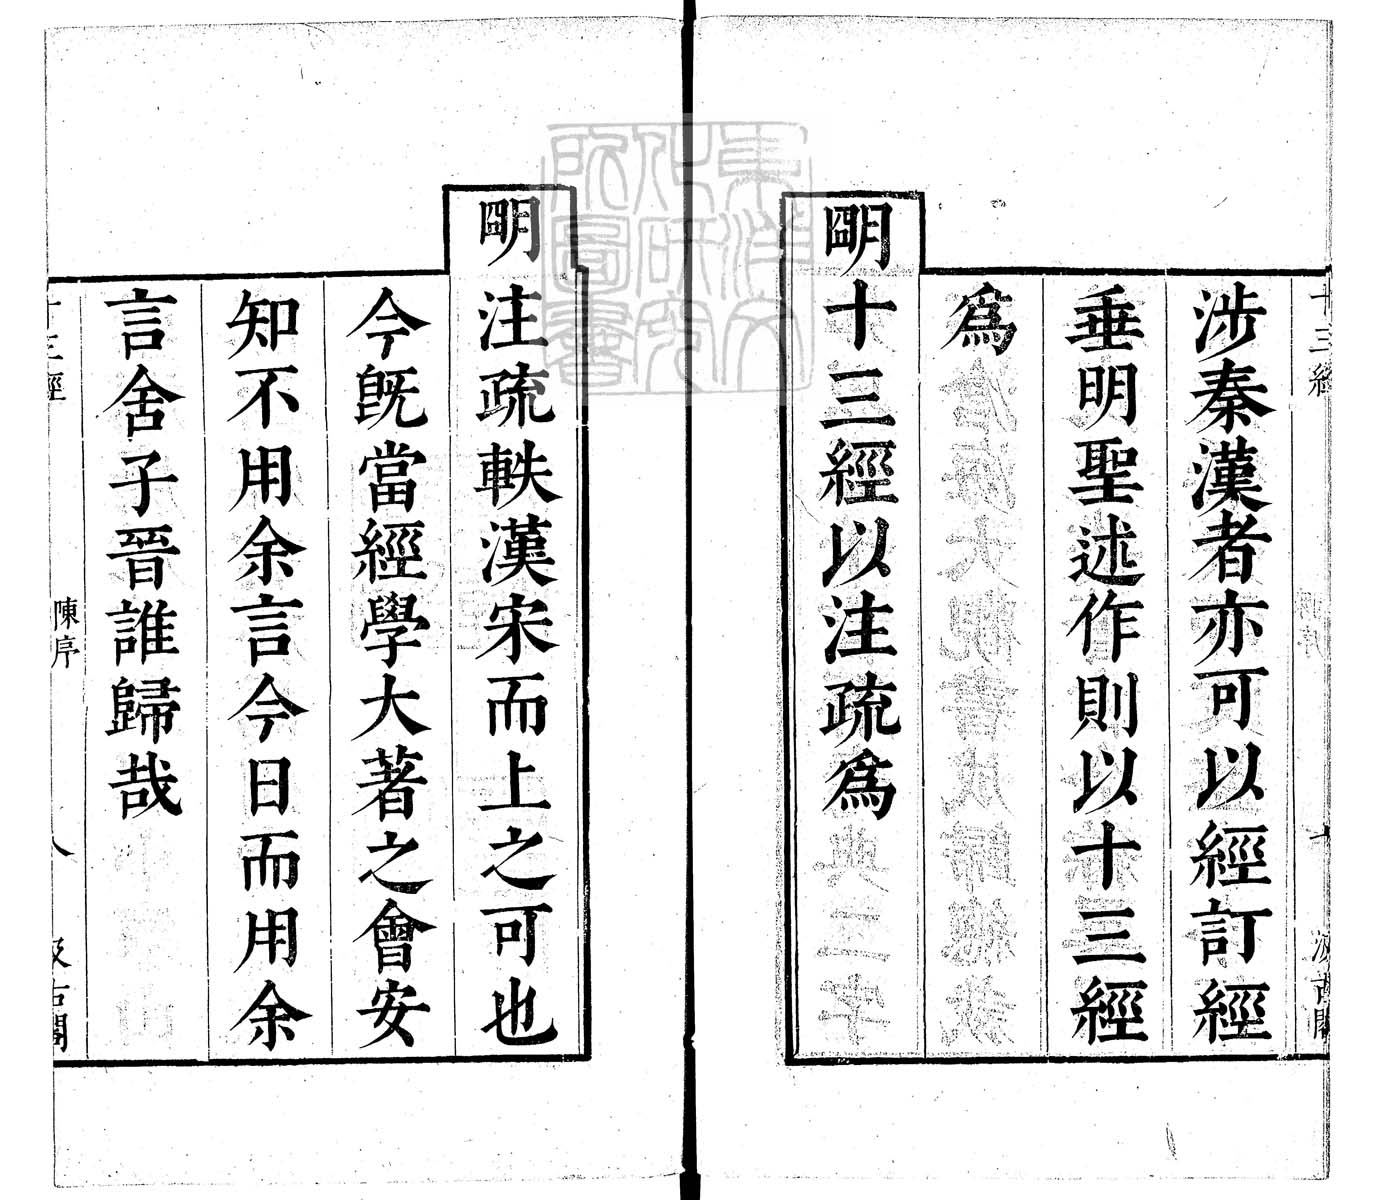 涉秦漢者亦可以經訂經
垂明聖述作則以十三經
爲
明十三經以注疏爲
明注疏軼漢宋而上之可也
今旣當經學大著之會安
知不用余言今日而用余
言舍子晉誰歸哉
十三經 陳序 八 汲古閣
東洋文
化研究
所圖書